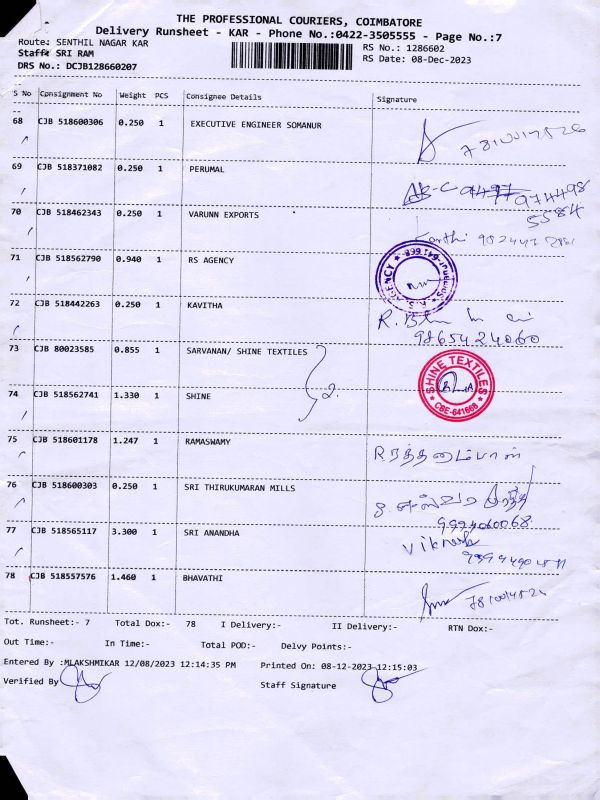 THE PROFESSIONAL COURIERS, COIMBATORE
Delivery Runsheet - KAR - Phone No.:0422-3505555 - Page No.:7
Route: SENTHIL NAGAR KAR
RS No.: 1286602
Staff: SRI RAM
RS Date: 08-Dec-2023
DRS No.: DCJB128660207
S No Consignment No Weight PCS Consignee Details Signature
68 CJB 518600306 0.250 1 EXECUTIVE ENGINEER SOMANUR
69 CJB 518371082 0.250 1 PERUMAL
974498
5584
70 CJB 518462343 0.250 1 VARUNN EXPORTS
Karthi
71 CJB 518562790 0.940 1 RS AGENCY
72 CJB 518442263 0.250 1 KAVITHA
9865424060
73 CJB 80023585 0.855 1 SARVANAN/ SHINE TEXTILES
2.
SHINE TEXTILES
CBE-641668
74 CJB 518562741 1.330 1 SHINE
75 CJB 518601178 1.247 1 RAMASWAMY
76 CJB 518600303 0.250 1 SRI THIRUKUMARAN MILLS
9994060068
77 CJB 518565117 3.300 1 SRI ANANDHA
78 CJB 518557576 1.460 1 BHAVATHI
Tot. Runsheet:- 7 Total Dox:- 78 I Delivery:- II Delivery:- RTN Dox:-
Out Time:- In Time:- Total POD:- Delvy Points:-
Entered By :MLAKSHMIKAR 12/08/2023 12:14:35 PM Printed On: 08-12-2023 12:15:03
Verified By Staff Signature